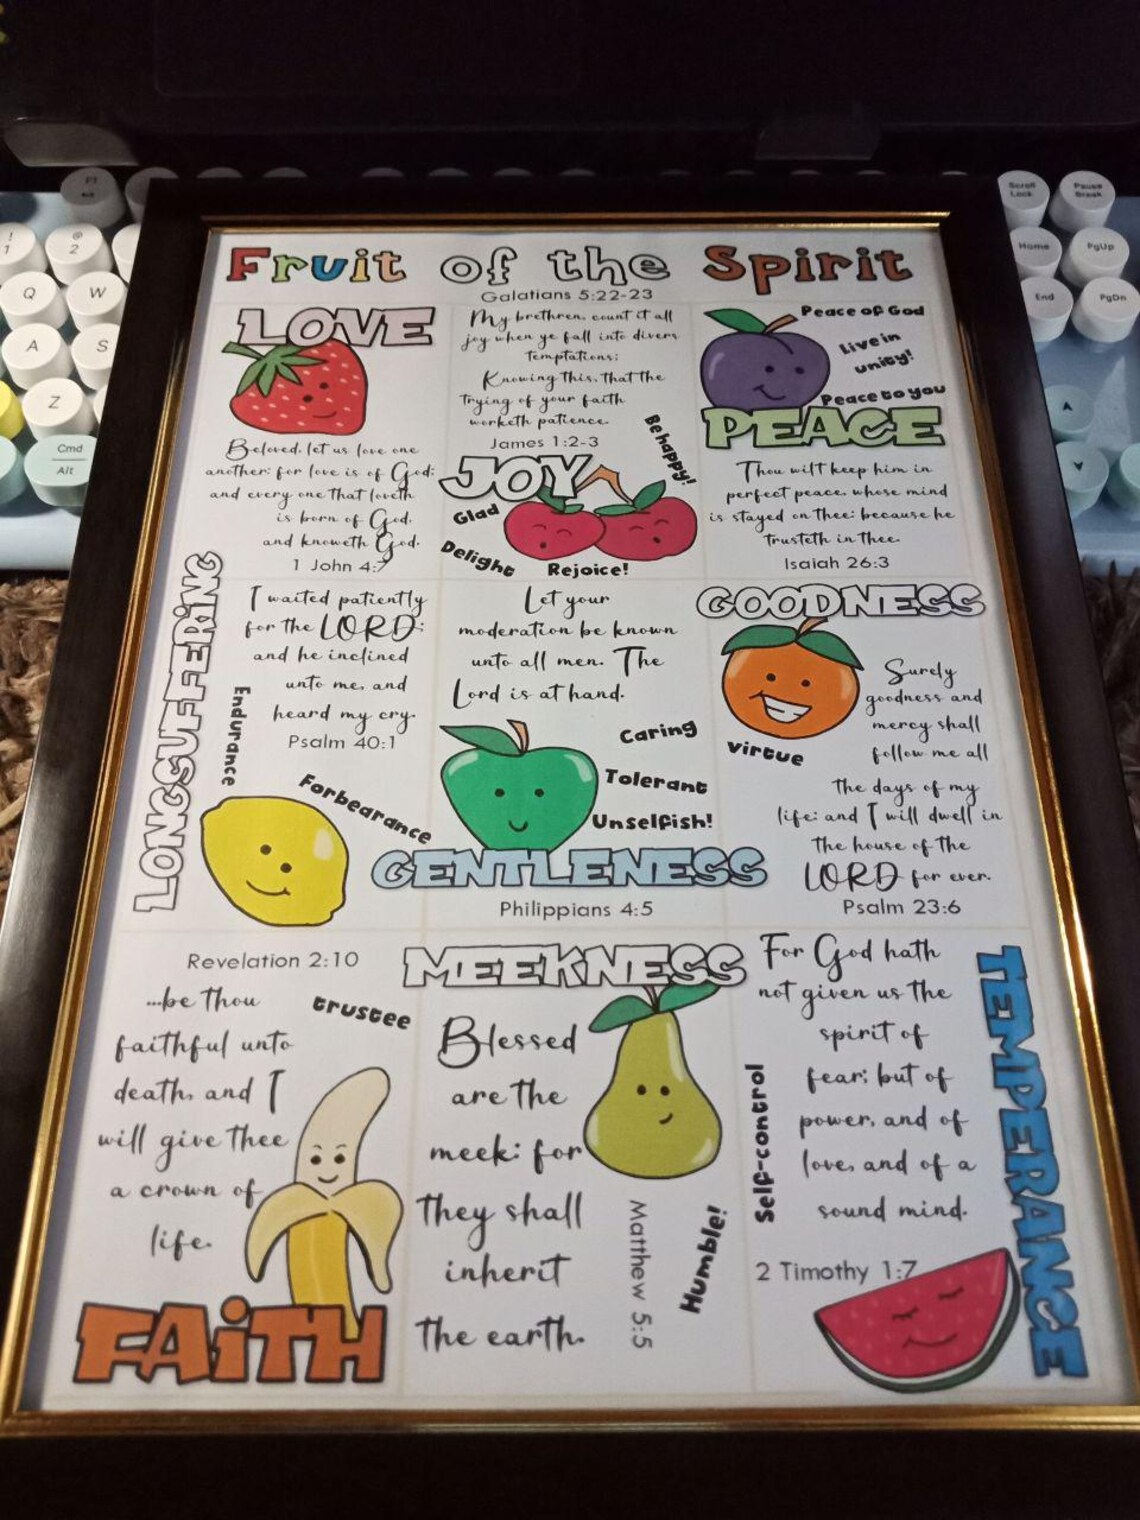 Fruit of the Spirit
Galatians 5:22-23
LOVE
Beloved, let us love one
another: for love is of God;
and every one that loveth
is born of God,
and knoweth God.
1 John 4:7
My brethren, count it all
joy when ye fall into divers
temptations;
Knowing this, that the
trying of your faith
worketh patience.
James 1:2-3
JOY
Be happy!
Glad
Delight
Rejoice!
Peace of God
Live in
unity!
Peace to you
PEACE
Thou wilt keep him in
perfect peace, whose mind
is stayed on thee: because he
trusteth in thee.
Isaiah 26:3
LONGSUFFERiNG
I waited patiently
for the LORD;
and he inclined
unto me, and
heard my cry.
Psalm 40:1
Endurance
Forbearance
Let your
moderation be known
unto all men. The
Lord is at hand.
Caring
Tolerant
Unselfish!
GENTLENESS
Philippians 4:5
GOODNESS
virtue
Surely
goodness and
mercy shall
follow me all
the days of my
life: and I will dwell in
the house of the
LORD for ever.
Psalm 23:6
Revelation 2:10
...be thou
faithful unto
death, and I
will give thee
a crown of
life.
trustee
FAiTH
MEEKNESS
Blessed
are the
meek: for
they shall
inherit
the earth.
Matthew 5:5
Humble!
For God hath
not given us the
spirit of
fear; but of
power, and of
love, and of a
sound mind.
2 Timothy 1:7
Self-control
TEMPERANCE
F1
!
1
@
2
Q
W
A
S
Z
Cmd
Alt
Scroll
Lock
Pause
Break
Home
PgUp
End
PgDn